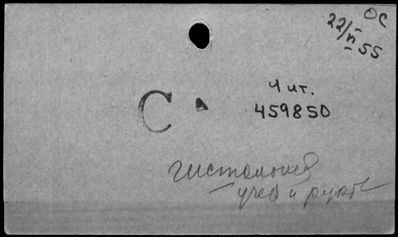 ОС
22/VI 55
Чит.
459850
С
гистология
учеб и руков